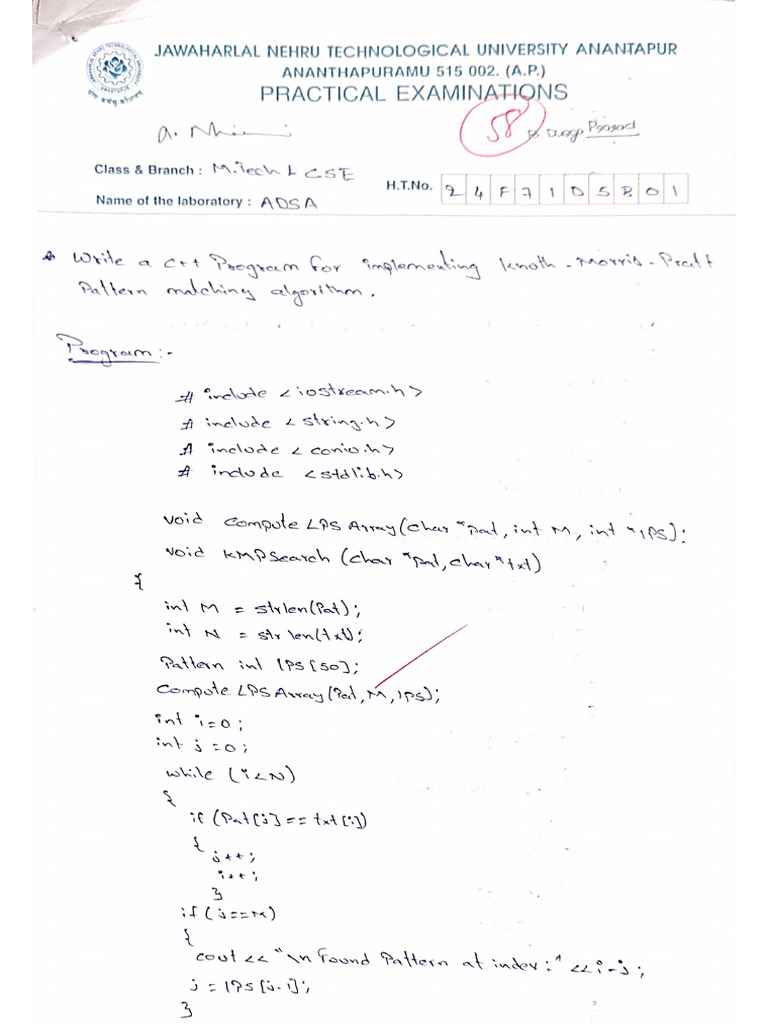 JAWAHARLAL NEHRU TECHNOLOGICAL UNIVERSITY ANANTAPUR
ANANTHAPURAMU 515 002. (A.P.)
PRACTICAL EXAMINATIONS
58
Prasad
Class & Branch : M.Tech I CSE
H.T.No. 24F71D5801
Name of the laboratory : ADSA
Write a C++ Program for implementing Knoth-Morris-Pratt
Pattern matching algorithm.
Program:-
# include <iostream.h>
# include <string.h>
# include <conio.h>
# include <stdlib.h>
void Compute LPS Array(char *pat, int M, int *lPS);
void KMPSearch (char *pat, char *txt)
{
int M = strlen(Pat);
int N = strlen(txt);
Pattern int lPS[50];
Compute LPS Array(Pat, M, lPS);
int i=0;
int j=0;
while (i<N)
{
if (Pat[j]==txt[i])
{
j++;
i++;
}
if (j==M)
{
cout << "\n Found Pattern at index:" <<i-j;
j = lPS[j-1];
}